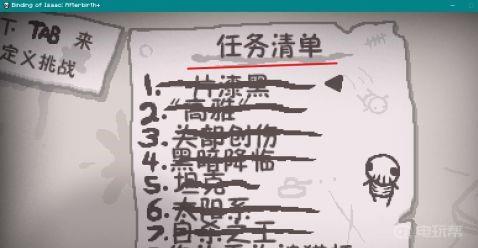 Binding of Isaac: Afterbirth+
下 TAB 来
定义挑战
任务清单
1. 一片漆黑
2. "高雅"
3. 头部创伤
4. 黑暗降临
5. 坦克
6. 太阳系
7. 自杀之王
电玩帮